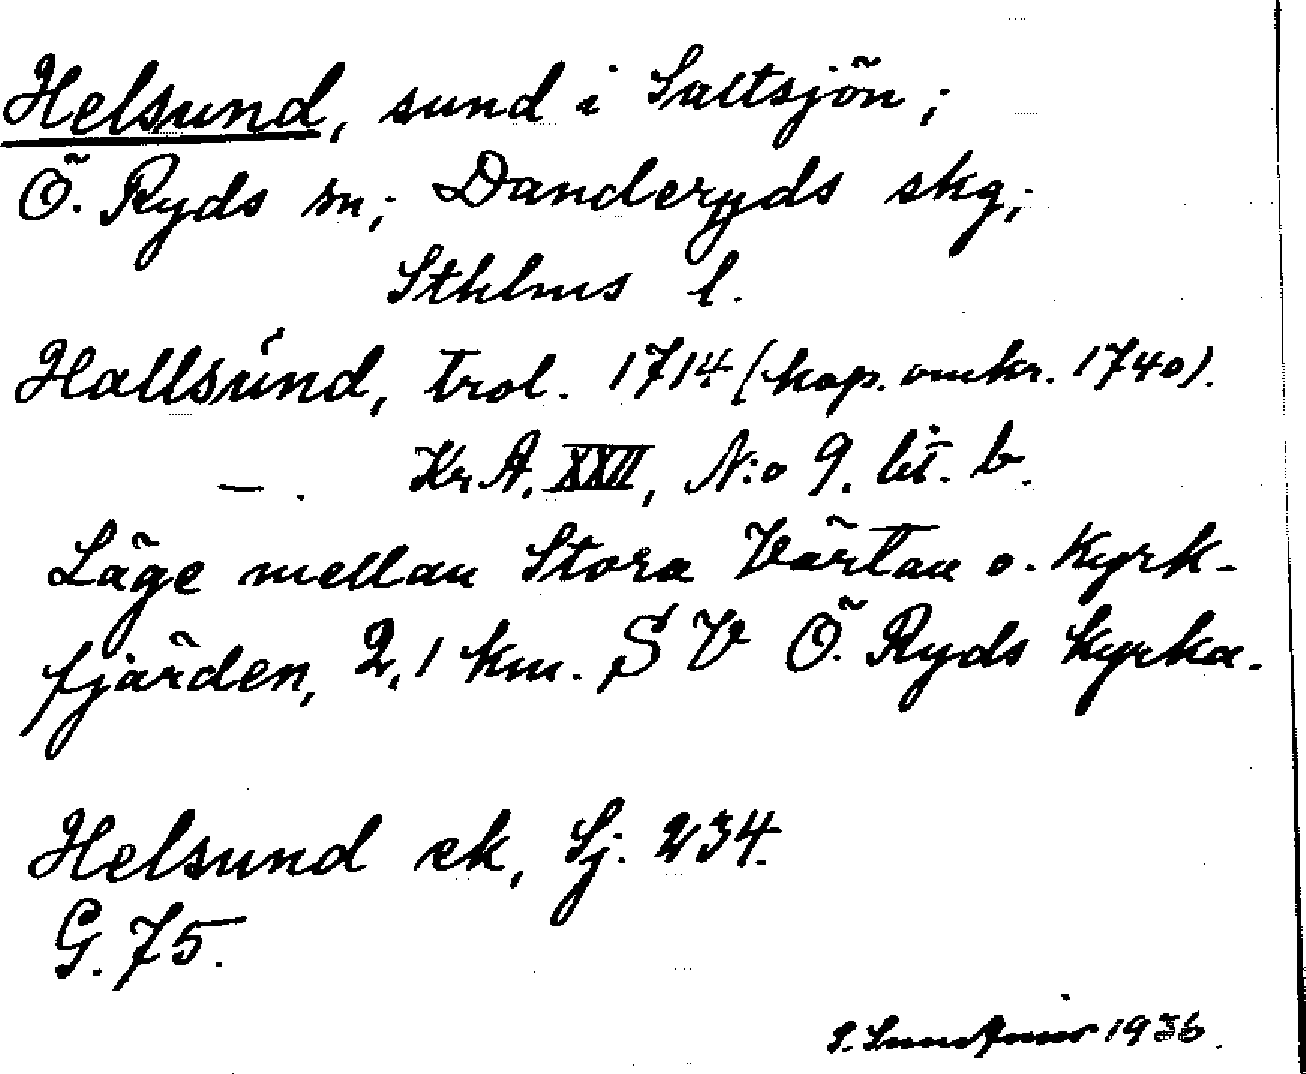 Helsund, sund i Saltsjön;
Ö. Ryds sn; Danderyds skg;
Sthlms l.
Hallsund, trol. 1714 (kop. omkr. 1740).
— . Kr. A. XXII, N:o 9. lit. b.
Läge mellan Stora Värtan o. Kyrk-
fjärden, 2,1 km. SV Ö. Ryds kyrka.
Helsund ek, Sj. 234.
G. 75.
1936.